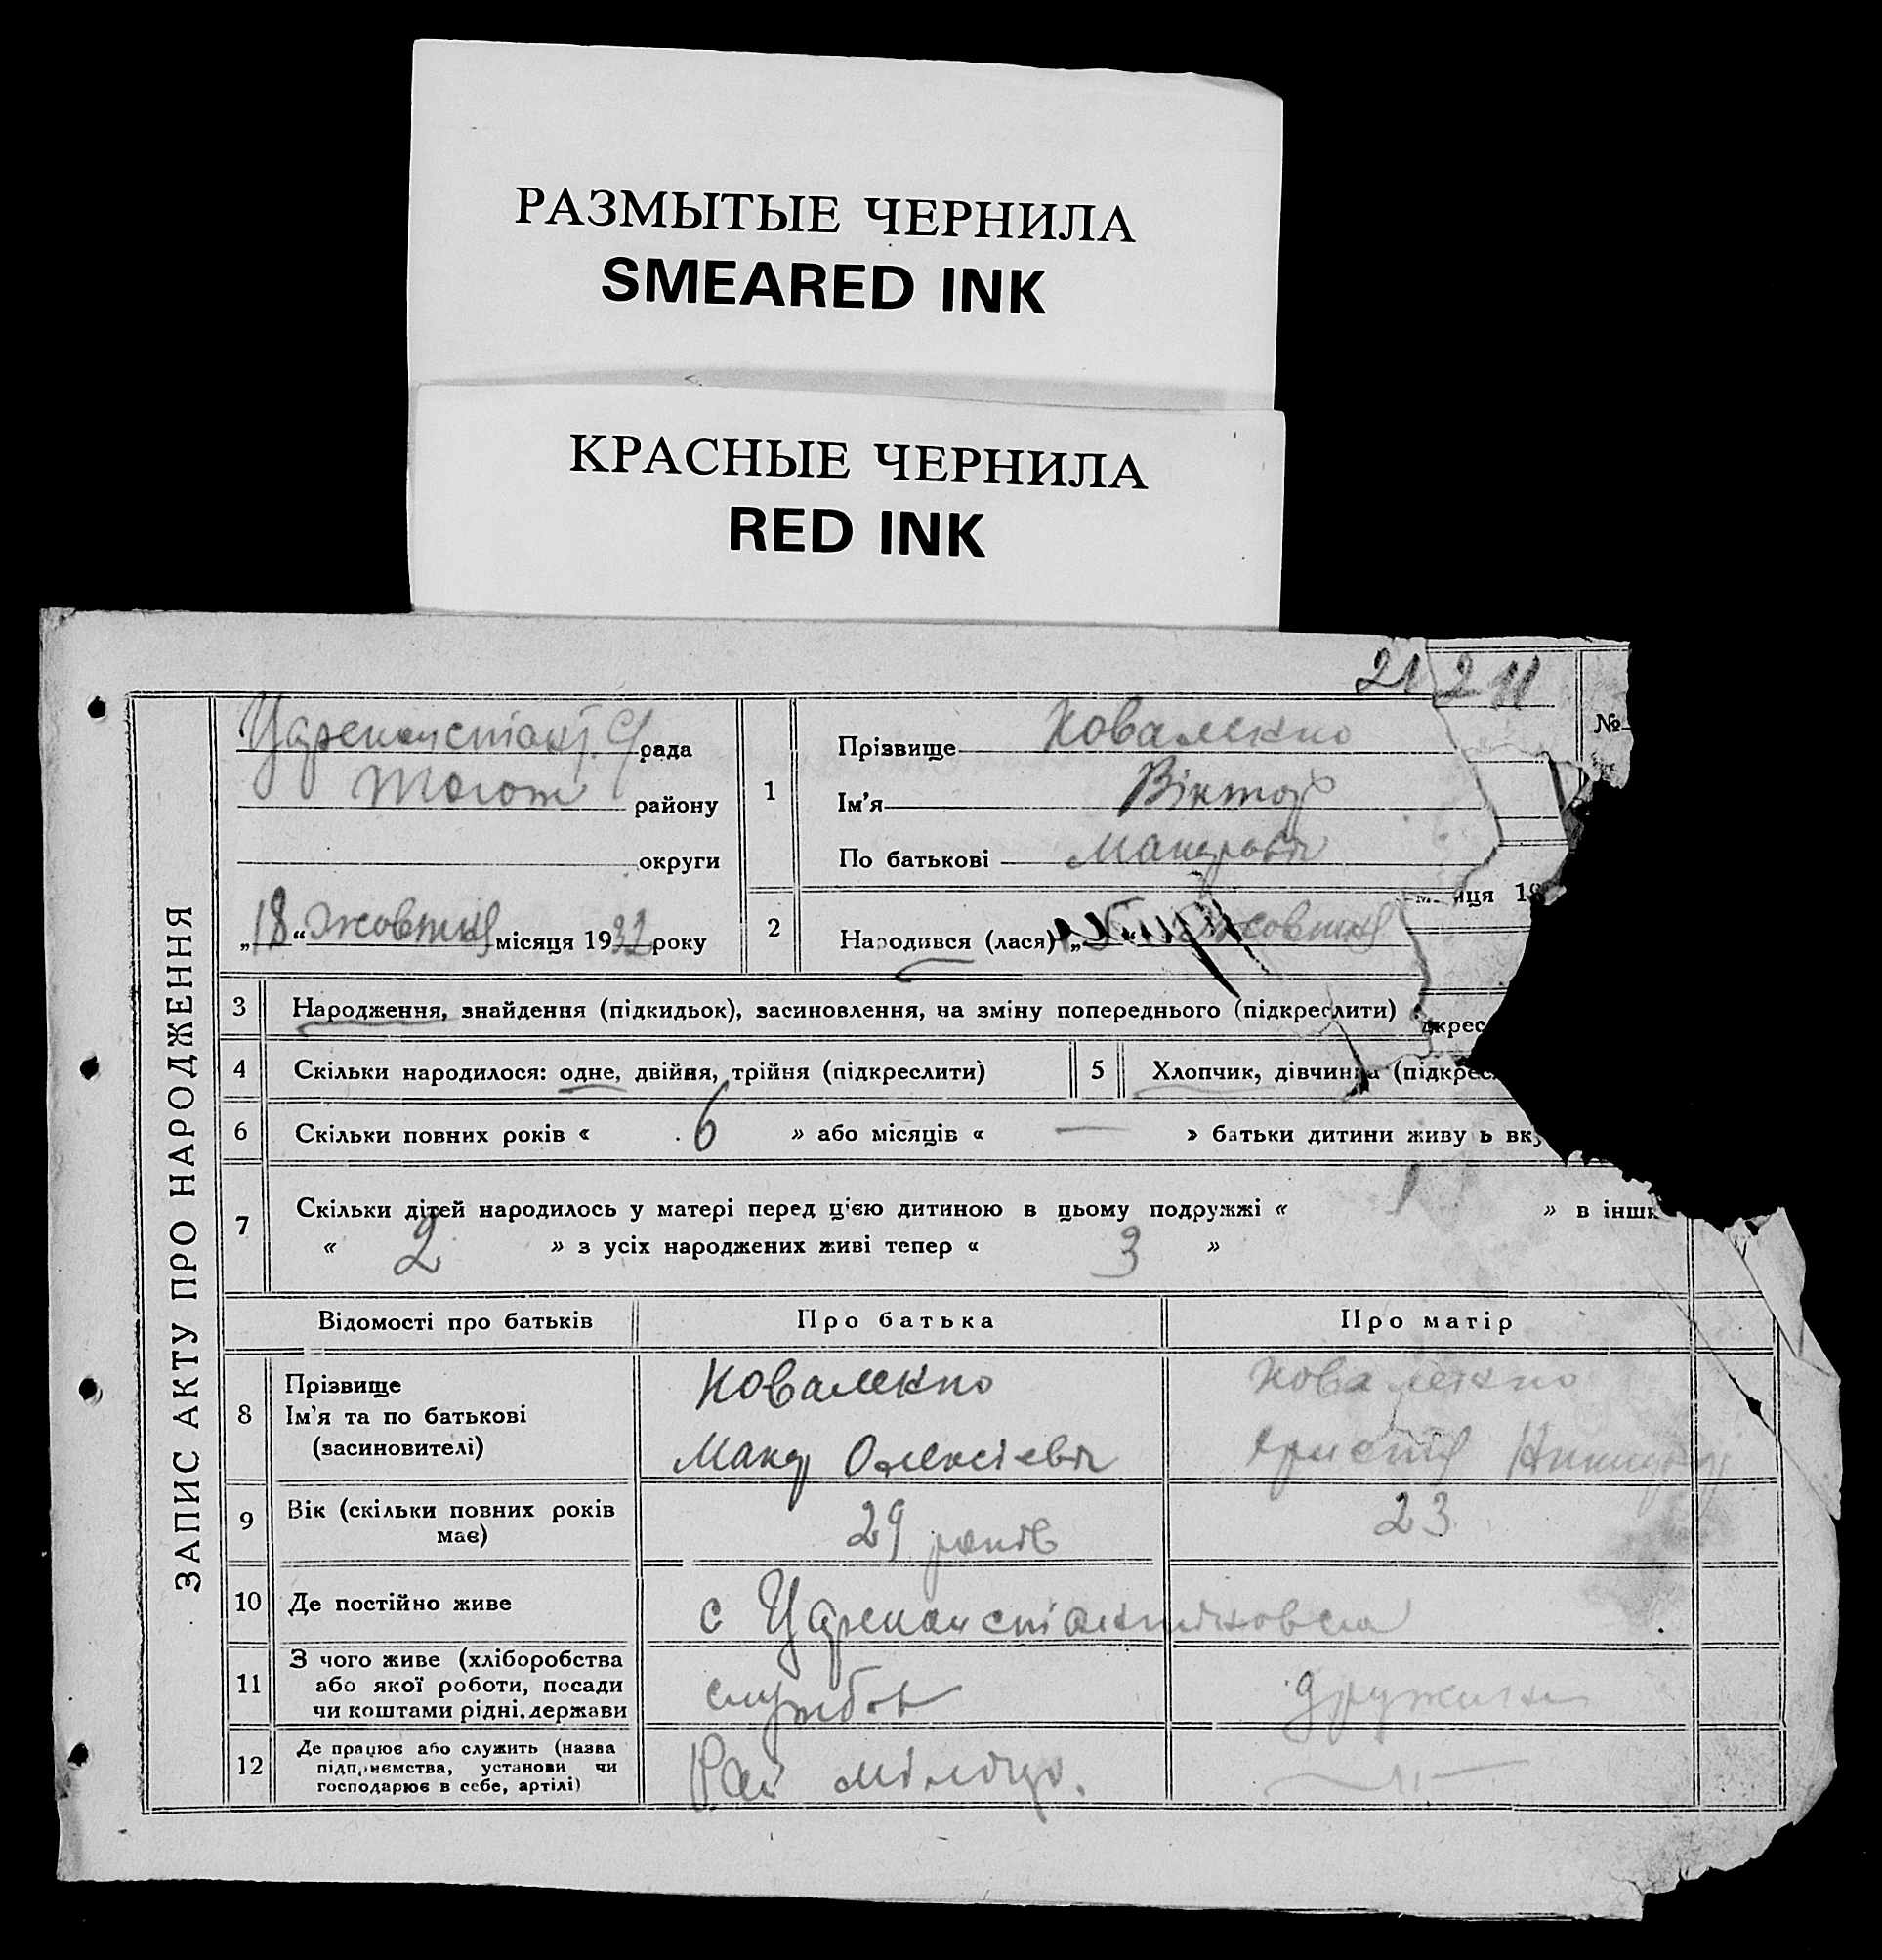 РАЗМЫТЫЕ ЧЕРНИЛА
SMEARED INK
КРАСНЫЕ ЧЕРНИЛА
RED INK
21 2 11
№
ЗАПИС АКТУ ПРО НАРОДЖЕННЯ
рада
району
округи
„18“ жовтня місяця 1932 року
1
Прізвище Коваленко
Ім'я Віктор
По батькові
2
Народився (лася) „ “ жовтня
иця 19
3 Народження, знайдення (підкидьок), засиновлення, на зміну попереднього (підкреслити)
дкрес
4 Скільки народилося: одне, двійня, трійня (підкреслити)
5 Хлопчик, дівчинка (підкрес
6 Скільки повних років « 6 » або місяців « — » батьки дитини живу ь вк
7 Скільки дітей народилось у матері перед ц'єю дитиною в цьому подружжі « 1 » в інши
« 2 » з усіх народжених живі тепер « 3 »
Відомості про батьків
Про батька
Про матір
8 Прізвище
Ім'я та по батькові
(засиновителі)
Коваленко
Макар Олексієвіч
Коваленко
9 Вік (скільки повних років
має)
29 років
23
10 Де постійно живе
с
11 З чого живе (хліборобства
або якої роботи, посади
чи коштами рідні, держави
службов
дружина
12 Де працює або служить (назва
підприємства, установи чи
господарює в себе, артілі)
Рай міліція.
— " —